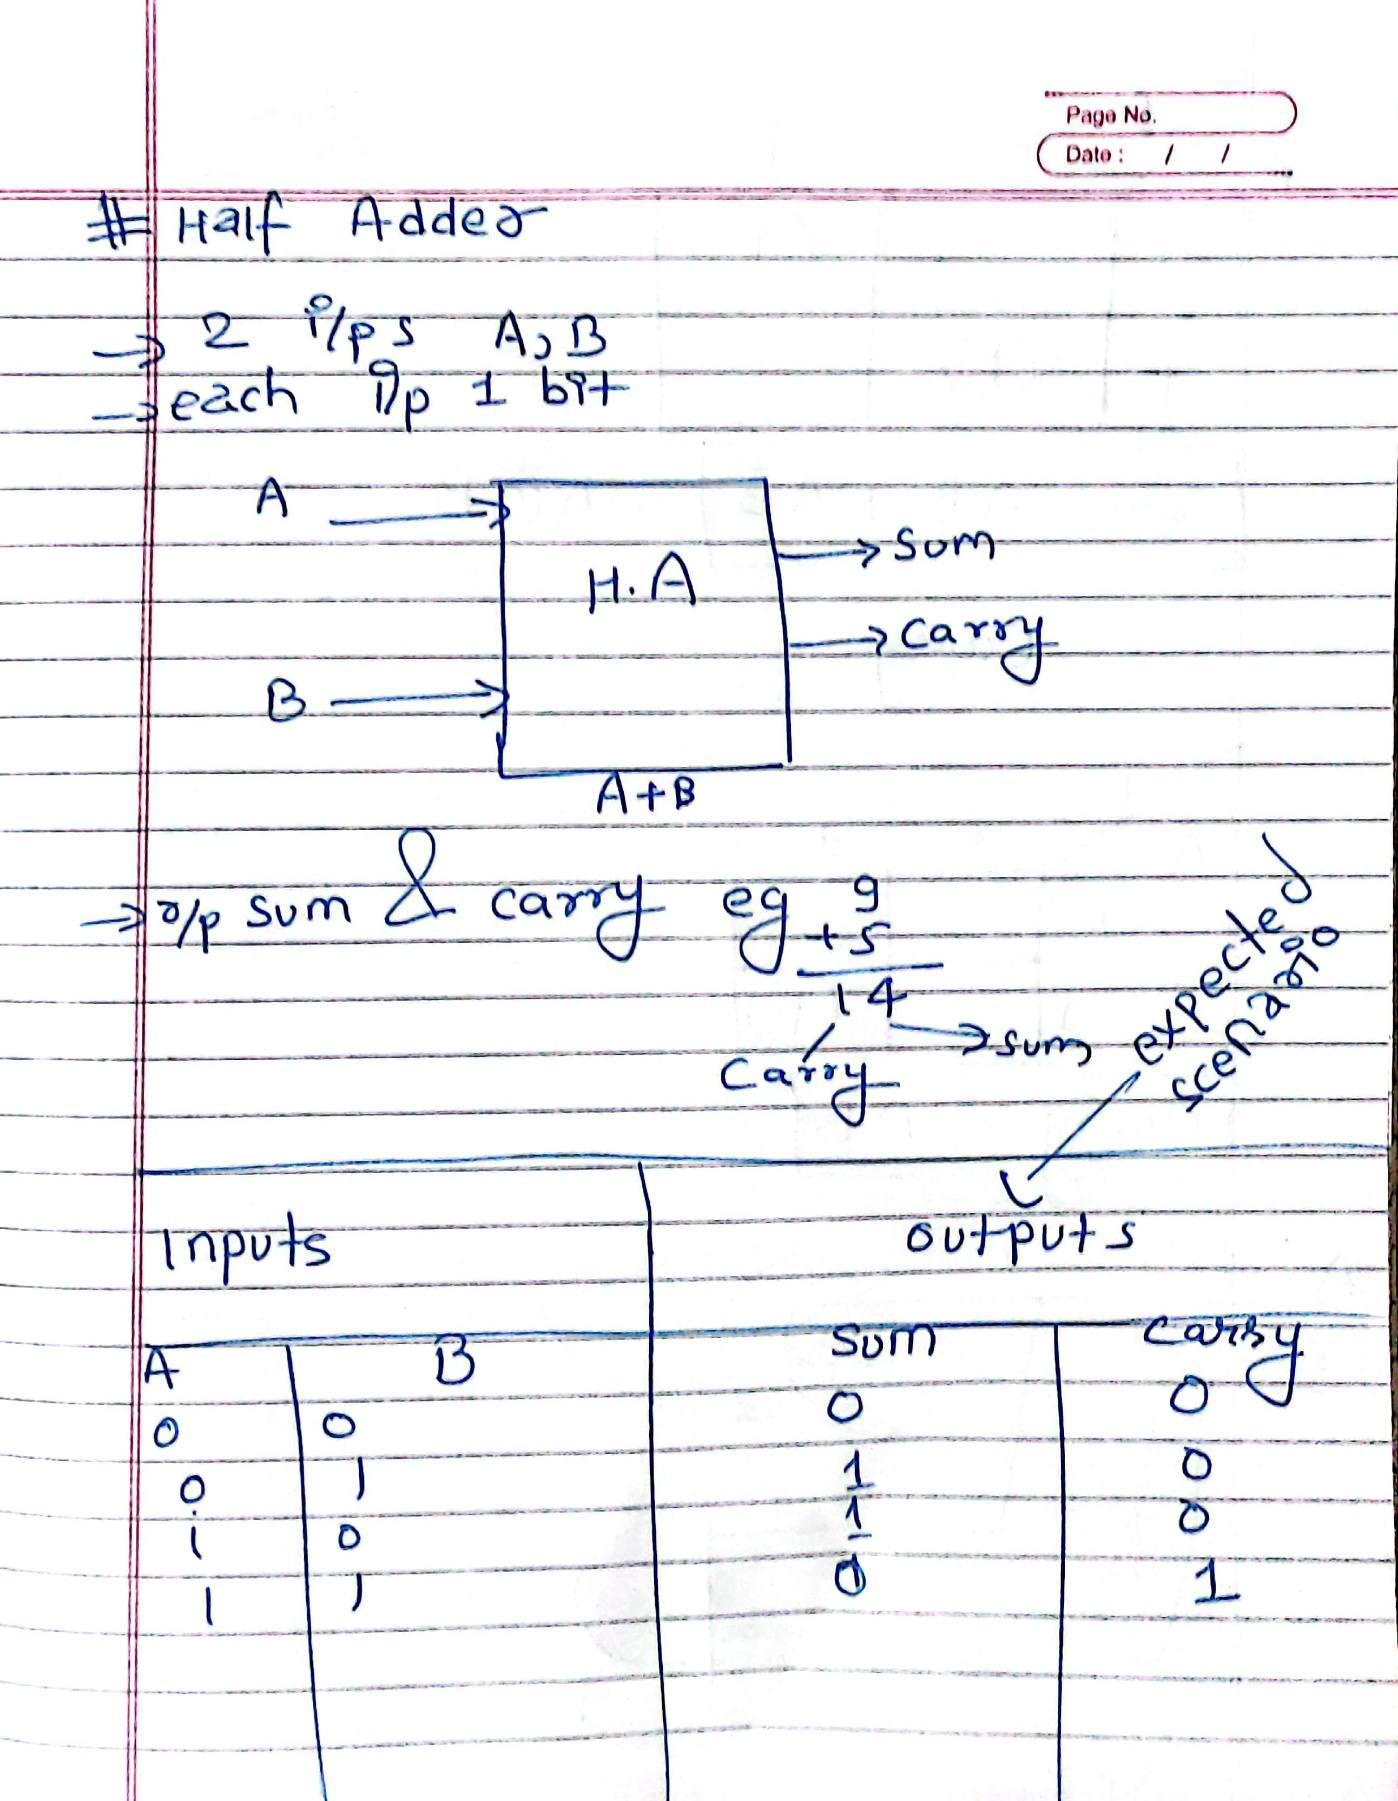 Page No.
Date : / /
# Half Adder
→ 2 i/ps A, B
→ each i/p 1 bit
A
Sum
H.A
Carry
B
A+B
→ o/p sum & carry eg 9
+ 5
14
Carry sum
expected
scenario
Inputs outputs
A B Sum Carry
0 0 0 0
0 1 1 0
1 0 1 0
1 1 0 1